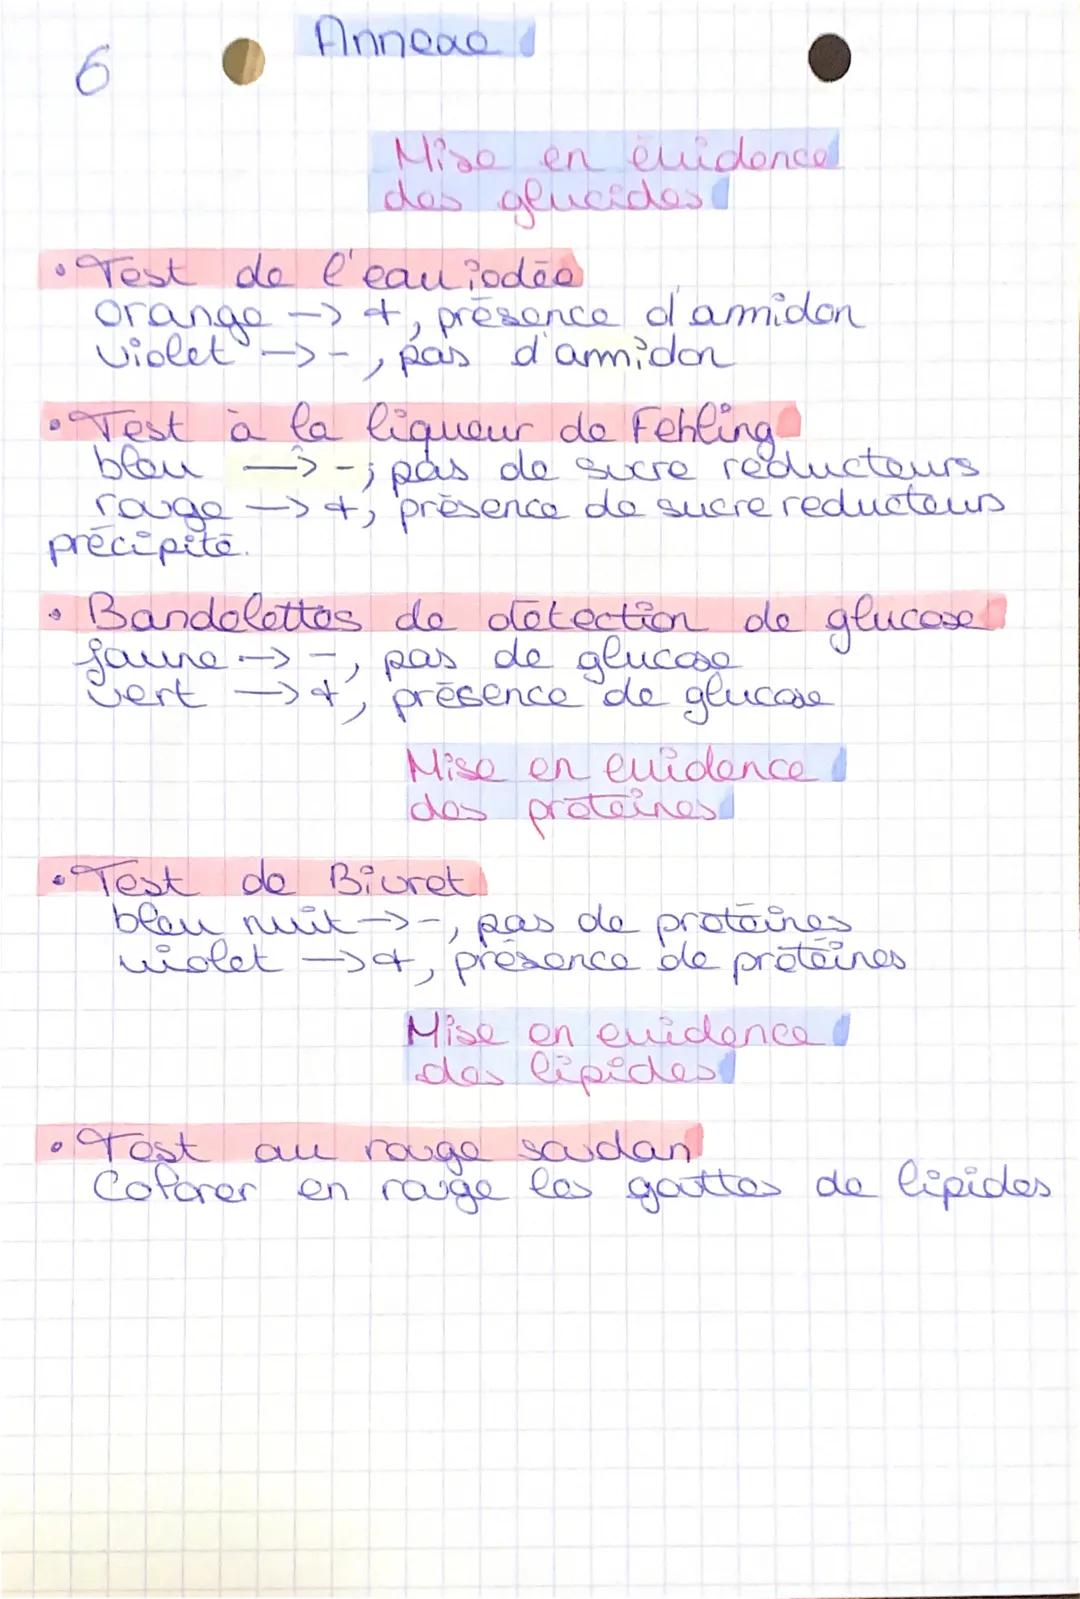 6
Annexe
Mise en évidence
des glucides
• Test de l'eau iodée
orange -> +, présence d'amidon
violet -> -, pas d'amidon
• Test à la liqueur de Fehling
bleu -> -; pas de sucre réducteurs
rouge -> +, présence de sucre reducteurs
précipité.
• Bandelettes de détection de glucose
jaune -> -, pas de glucose
vert -> +, présence de glucose
Mise en evidence
des protéines
• Test de Biuret
bleu nuit -> -, pas de protéines
violet -> +, présence de protéines
Mise en evidence
des lipides
• Test au rouge soudan
Colorer en rouge les gouttes de lipides